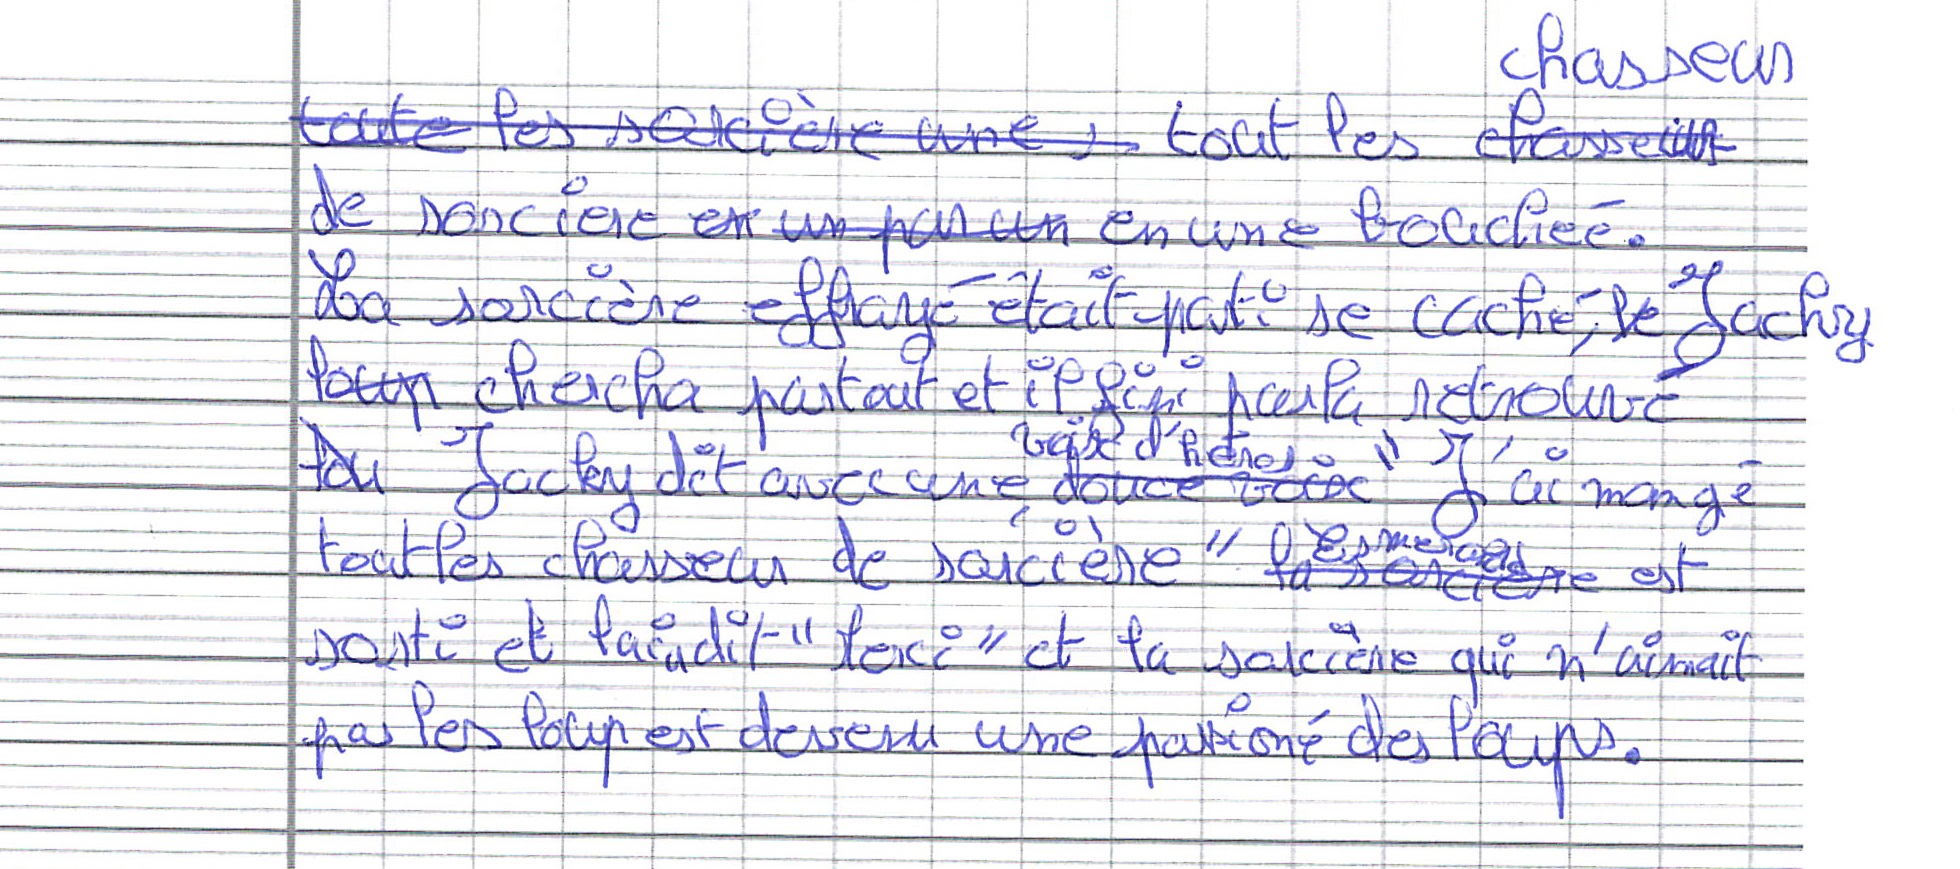 chasseur
toute les sorcière une s tout les chasseur
de sorciere en un par un en une bouchée.
La sorcière effrayé était parti se caché, le Jacky
loup chercha partout et il fini par la retrouvé
Jacky dit avec une douce voix "J'ai mangé
voix d'héros
tout les chasseur de sorcière" la sorcière est
sorti et lui a dit "merci" et la sorcière qui n'aimait
pas les loup est devenu une passioné des loups.